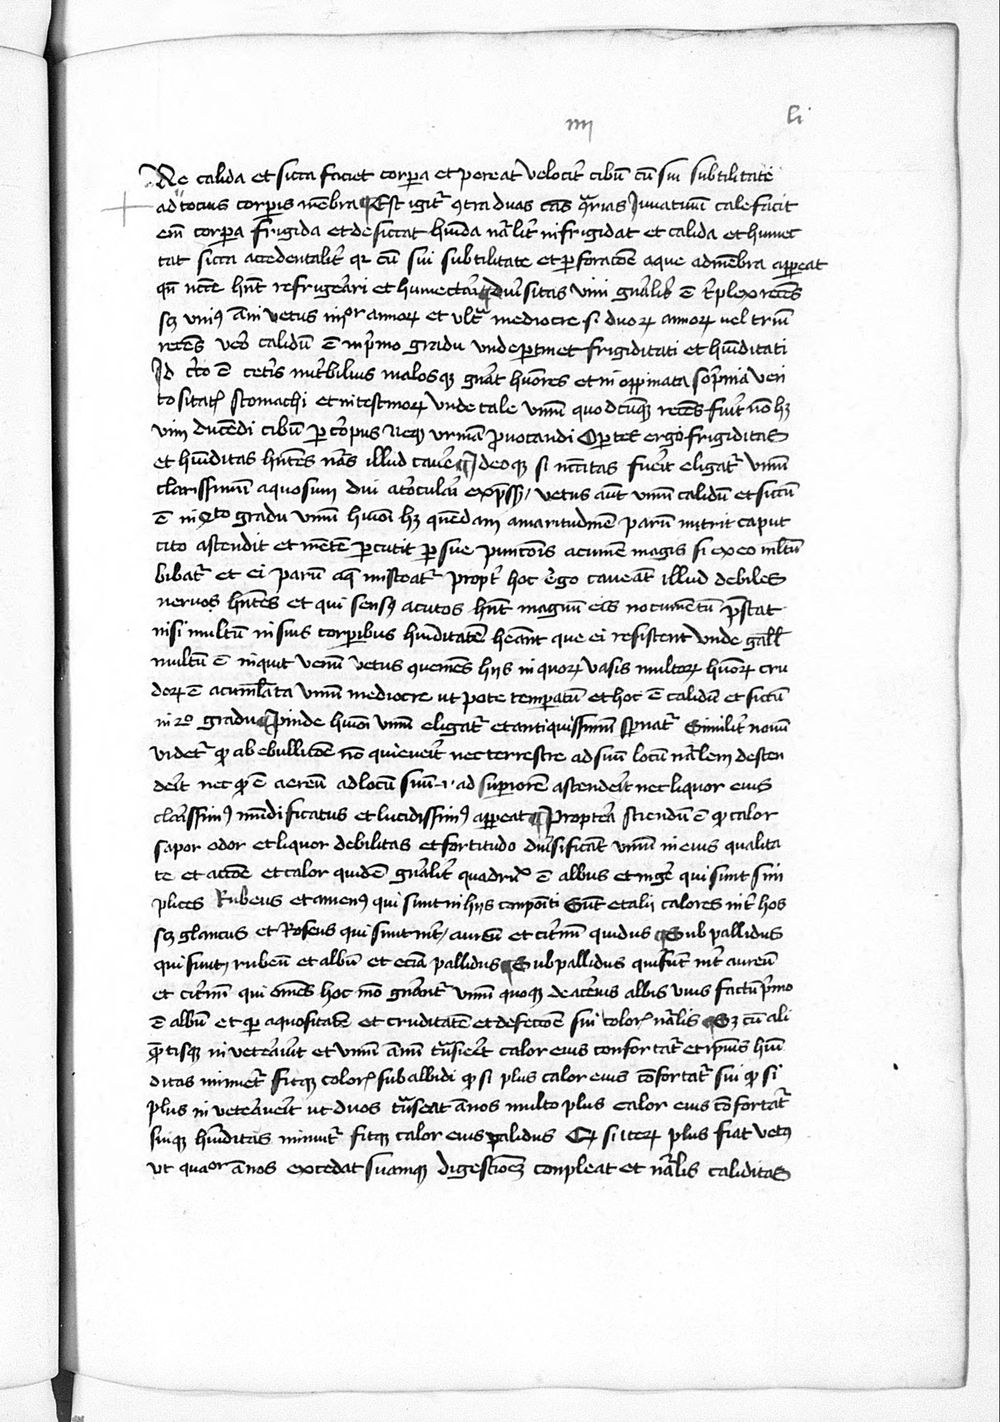 iiij li
Ne calida et sicca faciet corpora et pereat velocit cibu cu sui subtilitate
ad tocius corporis membra Est igit contra duas cas contrarias Juvatium calefacit
em corpora frigida et desiccat humida nalit infrigidat et calida et humec
tat sicca accedentalit qr cu sui subtilitate et perforacoe aque ad membra appeat
qn ncce hnt refrigerari et humectari Diversitas vini gnalit e triplex recens
scz unius ani vetus iiijor annorum et ultra mediocre si duorum annorum vel trium
recens vero calidu e in primo gradu unde pertinet frigiditati et humiditati
Id cto e ceteris nutribilius malosque gnat humores et inopinata sompnia ven
tositates stomachi et intestinorum unde tale vinum quodcumque recens fuerit non hz
vim ducendi cibu per corpus neque urinam provocandi Oportet ergo frigiditas
et humiditas hntes nas illud cavere Ideoque si nccitas fuerit eligatur vinum
clarissimum aquosum diu expressum vetus aut vinum calidu et siccu
e in gradu vinum humoi hz quendam amaritudine paru nutrit caput
cito ascendit et mente percutit per sue punctionis acumen magis si ex eo multum
bibatur et ei paru aque misceatur propter hoc ergo caveant illud debiles
nervos hntes et qui sensus acutos hnt magnum eis nocumentu prestat
nisi multu in suis corporibus humiditate heant que ei resistent unde gall
multu e inquit venum vetus conveniens hiis in quorum vasis multorum humorum cru
dorum e acumlata vinum mediocre ut pote temperatu et hoc e calidu et siccu
in 2o gradu Proinde humoi vinum eligatur et antiquissimum spernatur Similiter novum
videtur quod ab ebullicoe no quieverit nec terrestre ad suum locum nalem descen
derit nec quod e aereum ad locum suum .i. ad superiorem ascenderit nec liquor eius
clarissimus mundificatus et lucidissimus appeat Propterea sciendum e quod calor
sapor odor et liquor debilitas et fortitudo diversificat vinum in eius qualita
te et accoe et calor quidem gnalit quadruplex e albus et niger qui sunt sim
plices Rubeus et qui sunt in hiis compositi Sunt et alii calores inter hos
scz glaucus et Roseus qui sunt inter aureum et citrinum quidus Subpallidus
qui sunt rubeum et album et ecia pallidus Subpallidus qui sunt inter aureum
et citrinum qui omnes hoc modo gnantur vinum quoque de acinis albis uvis factum primo
e album et per aquositate et cruditate et defectoe sui coloris nalis Sz cum ali
quantisque inveteraverit et vinum annum transierit calor eius confortatur et ipsius humi
ditas minuetur fitque coloris subalbidi quod si plus calor eius confortatur sui quod si
plus inveteraverit ut duos transeat annos multo plus calor eius confortatur
suique humiditas minuitur fitque calor eius palidus Quod si iterum plus fiat vetus
ut quatuor annos excedat suamque digestionem compleat et nalis caliditas